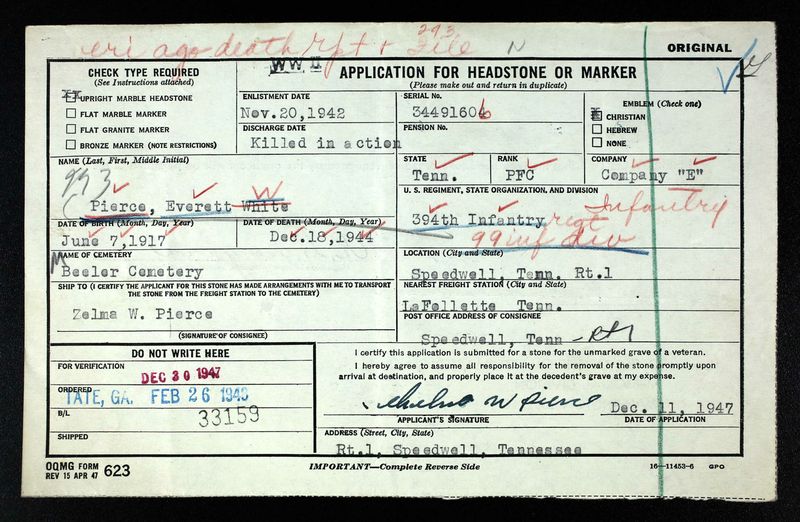 293
eri ago death rpt + File N
ORIGINAL
WW II
CHECK TYPE REQUIRED
(See Instructions attached)
UPRIGHT MARBLE HEADSTONE
FLAT MARBLE MARKER
FLAT GRANITE MARKER
BRONZE MARKER (NOTE RESTRICTIONS)
APPLICATION FOR HEADSTONE OR MARKER
(Please make out and return in duplicate)
ENLISTMENT DATE
Nov.20,1942
DISCHARGE DATE
Killed in action
SERIAL No.
34491606
PENSION No.
EMBLEM (Check one)
CHRISTIAN
HEBREW
NONE
NAME (Last, First, Middle Initial)
993
Pierce, Everett White
W
STATE
Tenn.
RANK
PFC
COMPANY
Company "E"
U. S. REGIMENT, STATE ORGANIZATION, AND DIVISION
394th Infantry regt Infantry
99 inf div
DATE OF BIRTH (Month, Day, Year)
June 7,1917
DATE OF DEATH (Month, Day, Year)
Dec.18,1944
NAME OF CEMETERY
Beeler Cemetery
LOCATION (City and State)
Speedwell, Tenn. Rt.1
SHIP TO (I CERTIFY THE APPLICANT FOR THIS STONE HAS MADE ARRANGEMENTS WITH ME TO TRANSPORT
THE STONE FROM THE FREIGHT STATION TO THE CEMETERY)
Zelma W. Pierce
(SIGNATURE OF CONSIGNEE)
NEAREST FREIGHT STATION (City and State)
LaFollette Tenn.
POST OFFICE ADDRESS OF CONSIGNEE
Speedwell, Tenn - Rt 1
DO NOT WRITE HERE
FOR VERIFICATION
DEC 30 1947
ORDERED
TATE, GA. FEB 26 1948
B/L
33159
SHIPPED
I certify this application is submitted for a stone for the unmarked grave of a veteran.
I hereby agree to assume all responsibility for the removal of the stone promptly upon
arrival at destination, and properly place it at the decedent's grave at my expense.
W Pierce
Dec. 11, 1947
APPLICANT'S SIGNATURE
DATE OF APPLICATION
ADDRESS (Street, City, State)
Rt.1, Speedwell, Tennessee
OQMG FORM
REV 15 APR 47 623
IMPORTANT—Complete Reverse Side
16—11453-6 GPO